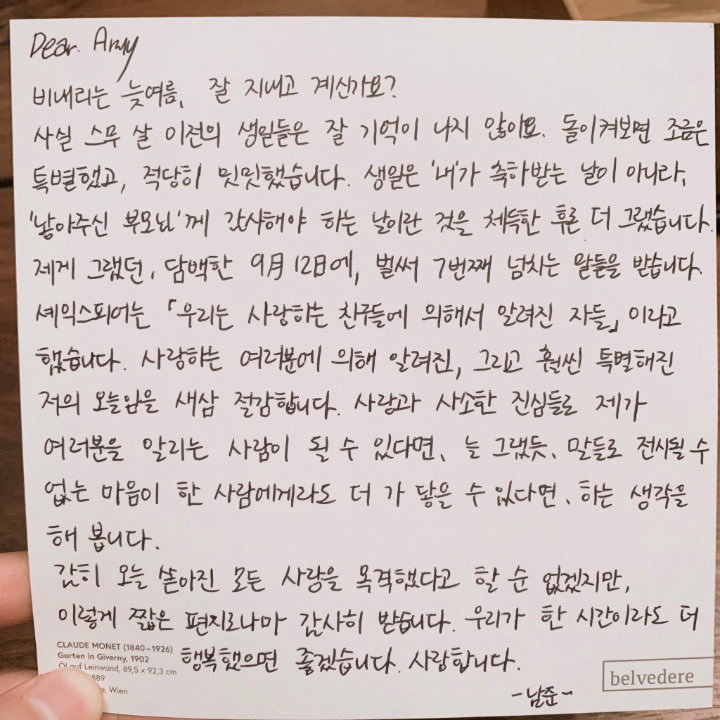 Dear. Army
비내리는 늦여름, 잘 지내고 계신가요?
사실 스무 살 이전의 생일들은 잘 기억이 나지 않아요. 돌이켜보면 조금은
특별했고, 적당히 밋밋했습니다. 생일은 '내'가 축하받는 날이 아니라,
'낳아주신 부모님'께 감사해야 하는 날이란 것을 체득한 후론 더 그랬습니다.
제게 그랬던, 담백한 9月 12日에, 벌써 7번째 넘치는 말들을 받습니다.
셰익스피어는 「우리는 사랑하는 친구들에 의해서 알려진 자들」 이라고
했습니다. 사랑하는 여러분에 의해 알려진, 그리고 훨씬 특별해진
저의 오늘임을 새삼 절감합니다. 사람과 사소한 진심들로 제가
여러분을 알리는 사람이 될 수 있다면, 늘 그랬듯, 말들로 전시될 수
없는 마음이 한 사람에게라도 더 가 닿을 수 있다면, 하는 생각을
해 봅니다.
감히 오늘 쏟아진 모든 사랑을 목격했다고 할 순 없겠지만,
이렇게 짧은 편지로나마 감사히 받습니다. 우리가 한 시간이라도 더
행복했으면 좋겠습니다. 사랑합니다.
-남준-
CLAUDE MONET (1840–1926)
Garten in Giverny, 1902
Öl auf Leinwand, 89,5 × 92,3 cm
3889
Wien
belvedere